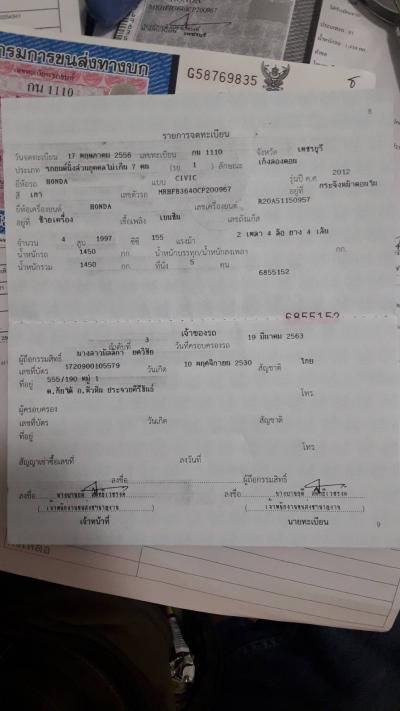 MRHFB3640CP200967
กรมการขนส่งทางบก
กน 1110
G58769835
8
รายการจดทะเบียน
วันจดทะเบียน 17 พฤษภาคม 2556 เลขทะเบียน กน 1110 จังหวัด เพชรบุรี
ประเภท รถยนต์นั่งส่วนบุคคลไม่เกิน 7 คน (รย. 1 ) ลักษณะ เก๋งสองตอน
ยี่ห้อรถ HONDA แบบ CIVIC รุ่นปี ค.ศ. 2012
สี เทา เลขตัวรถ MRHFB3640CP200967 อยู่ที่ กระจังหน้าตอนใน
ยี่ห้อเครื่องยนต์ HONDA เลขเครื่องยนต์ R20A51150957
อยู่ที่ ซ้ายเครื่อง เชื้อเพลิง เบนซิน เลขถังแก๊ส
จำนวน 4 สูบ 1997 ซีซี 155 แรงม้า 2 เพลา 4 ล้อ ยาง 4 เส้น
น้ำหนักรถ 1450 กก. น้ำหนักบรรทุก/น้ำหนักลงเพลา กก.
น้ำหนักรวม 1450 กก. ที่นั่ง 5 คน
6855152
6855152
เจ้าของรถ
ลำดับที่ 3 วันที่ครอบครองรถ 19 มีนาคม 2563
ผู้ถือกรรมสิทธิ์
เลขที่บัตร 1720900105579 วันเกิด 10 พฤศจิกายน 2530 สัญชาติ ไทย
ที่อยู่ 555/190 หมู่ 1
อ.หัวหิน ประจวบคีรีขันธ์ โทร.
ผู้ครอบครอง
เลขที่บัตร วันเกิด สัญชาติ
ที่อยู่
โทร.
สัญญาเช่าซื้อเลขที่ ลงวันที่
ลงชื่อ ผู้ถือกรรมสิทธิ์
ลงชื่อ ลงชื่อ
เจ้าหน้าที่ นายทะเบียน
9